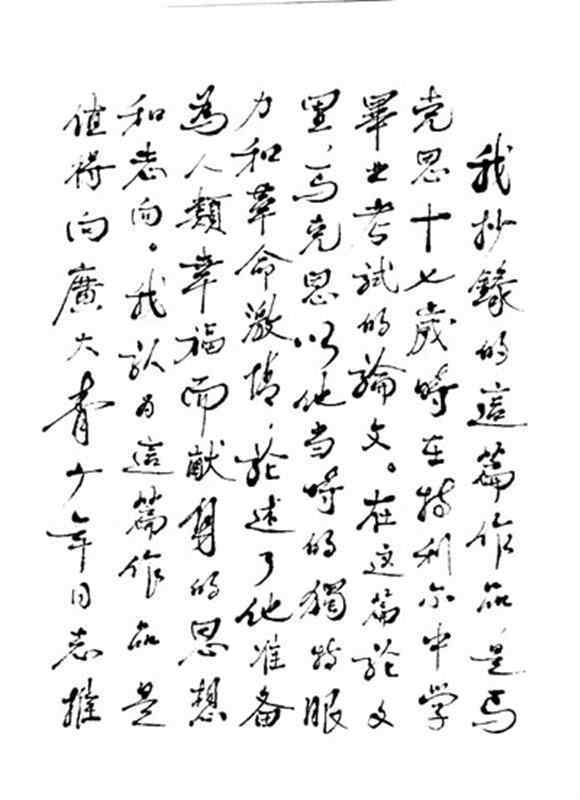 我抄録的這篇作品,是马
克思十七歲時在特利尔中学
畢业考试的論文。在这篇论文
里,马克思以他当时的獨特眼
力和革命激情,论述了他准备
為人類幸福而献身的思想
和志向。我认为這篇作品是
值得向廣大青少年同志推